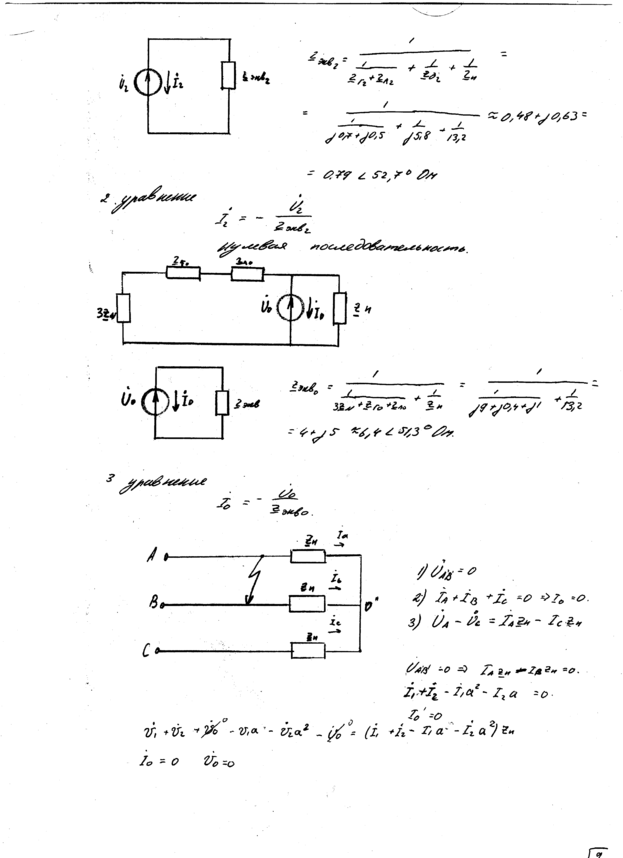 Z экв₂ = 1 / (1/(Z г₂ + Z л₂) + 1/Z д₂ + 1/Z н) =
U̇₂ İ₂ Z экв₂
= 1 / (1/(j0,7+j0,5) + 1/j5,8 + 1/13,2) ≈ 0,48 + j0,63 =
= 0.79 ∠ 52,7° Ом
2. уравнение
İ₂ = - U̇₂ / Z экв₂
Нулевая последовательность.
Zг₀ Zл₀
3Z_N U̇₀ İ₀ Z н
U̇₀ İ₀ Z экв
Z экв₀ = 1 / (1/(3Z_N + Z г₀ + Z л₀) + 1/Z н) = 1 / (1/(j9+j0,4+j1) + 1/13,2) =
= 4 + j5 ≈ 6,4 ∠ 51,3° Ом.
3 уравнение
İ₀ = - U̇₀ / Z экв₀.
A Zн İa
B Zн İb 0'
C Zн İc
1) U̇_AB = 0
2) İ_A + İ_B + İ_C = 0 ⇒ I₀ = 0.
3) U̇_A - U̇_C = İ_A Zн - I_C Zн
U_AB = 0 ⇒ I_A Zн - I_B Zн = 0.
İ₁ + İ₂ - İ₁a² - I₂a = 0.
I₀' = 0
U̇₁ + U̇₂ + U̇₀⁰ - U₁a - U̇₂a² - U̇₀⁰ = (İ₁ + İ₂ - I₁a - İ₂a²) Zн
İ₀ = 0 U̇₀ = 0